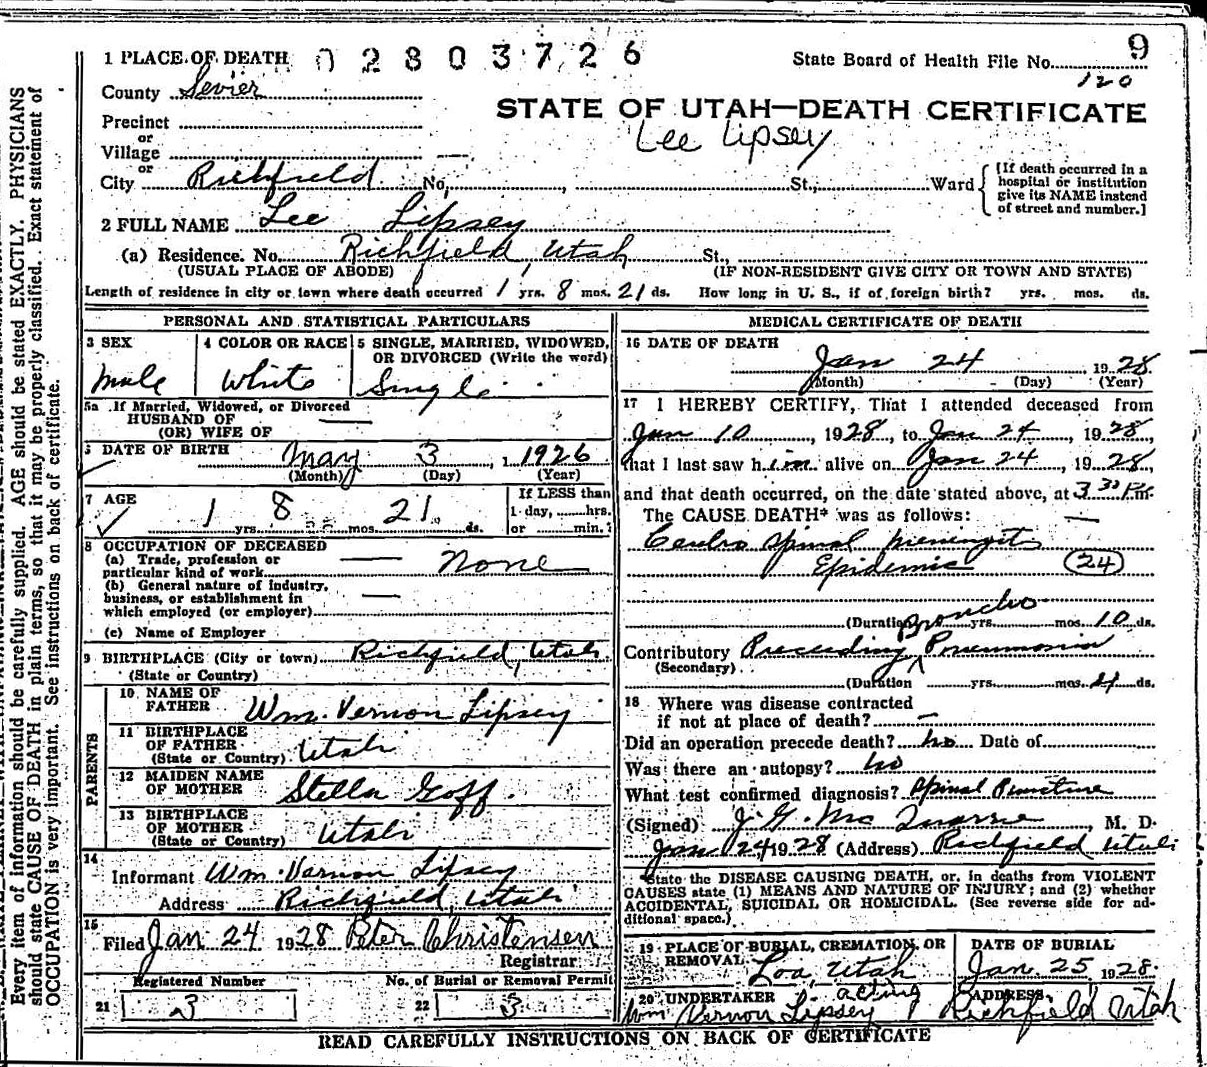 1 PLACE OF DEATH 02803726 State Board of Health File No. 9
County Sevier 120
STATE OF UTAH—DEATH CERTIFICATE
Precinct
or
Lee Lipsey
Village
or
City Richfield No. , St., Ward {[If death occurred in a hospital or institution give its NAME instead of street and number.]
2 FULL NAME Lee Lipsey
(a) Residence. No. Richfield, Utah St.,
(USUAL PLACE OF ABODE) (IF NON-RESIDENT GIVE CITY OR TOWN AND STATE)
Length of residence in city or town where death occurred 1 yrs. 8 mos. 21 ds. How long in U. S., if of foreign birth? yrs. mos. ds.
PERSONAL AND STATISTICAL PARTICULARS
3 SEX 4 COLOR OR RACE 5 SINGLE, MARRIED, WIDOWED,
OR DIVORCED (Write the word)
Male White Single
5a If Married, Widowed, or Divorced
HUSBAND OF
(OR) WIFE OF
6 DATE OF BIRTH May 3, 1926
(Month) (Day) (Year)
7 AGE If LESS than
1 day, hrs.
1 yrs. 8 mos. 21 ds. or min.?
8 OCCUPATION OF DECEASED
(a) Trade, profession or
particular kind of work None
(b) General nature of industry,
business, or establishment in
which employed (or employer)
(c) Name of Employer
9 BIRTHPLACE (City or town) Richfield, Utah.
(State or Country)
PARENTS
10 NAME OF
FATHER Wm. Vernon Lipsey
11 BIRTHPLACE
OF FATHER
(State or Country) Utah
12 MAIDEN NAME
OF MOTHER Stella Goff.
13 BIRTHPLACE
OF MOTHER
(State or Country) Utah
14
Informant Wm. Vernon Lipsey
Address Richfield, Utah
15
Filed Jan 24 1928 Peter Christensen
Registrar
Registered Number No. of Burial or Removal Permit
21 3 22 3
MEDICAL CERTIFICATE OF DEATH
16 DATE OF DEATH
Jan 24 1928
(Month) (Day) (Year)
17 I HEREBY CERTIFY, That I attended deceased from
Jan 10, 1928, to Jan 24, 1928,
that I last saw him alive on Jan 24, 1928,
and that death occurred, on the date stated above, at 3 30 P.m.
The CAUSE DEATH* was as follows:
Cerebro Spinal Meningitis
Epidemic (24)
(Duration yrs. mos. 10 ds.
Broncho
Contributory Preceeding Pneumonia
(Secondary)
(Duration yrs. mos. ds.
18 Where was disease contracted
if not at place of death? —
Did an operation precede death? no Date of
Was there an autopsy? no
What test confirmed diagnosis? Spinal Puncture
(Signed) J. G. McQuarrie, M. D.
Jan 24 1928 (Address) Richfield Utah
*State the DISEASE CAUSING DEATH, or, in deaths from VIOLENT
CAUSES state (1) MEANS AND NATURE OF INJURY; and (2) whether
ACCIDENTAL, SUICIDAL OR HOMICIDAL. (See reverse side for ad-
ditional space.)
19 PLACE OF BURIAL, CREMATION, OR DATE OF BURIAL
REMOVAL Loa, Utah Jan 25, 1928
20 UNDERTAKER acting ADDRESS
Wm Vernon Lipsey Richfield Utah
READ CAREFULLY INSTRUCTIONS ON BACK OF CERTIFICATE
Every item of information should be carefully supplied. AGE should be stated EXACTLY. PHYSICIANS
should state CAUSE OF DEATH in plain terms, so that it may be properly classified. Exact statement of
OCCUPATION is very important. See instructions on back of certificate.